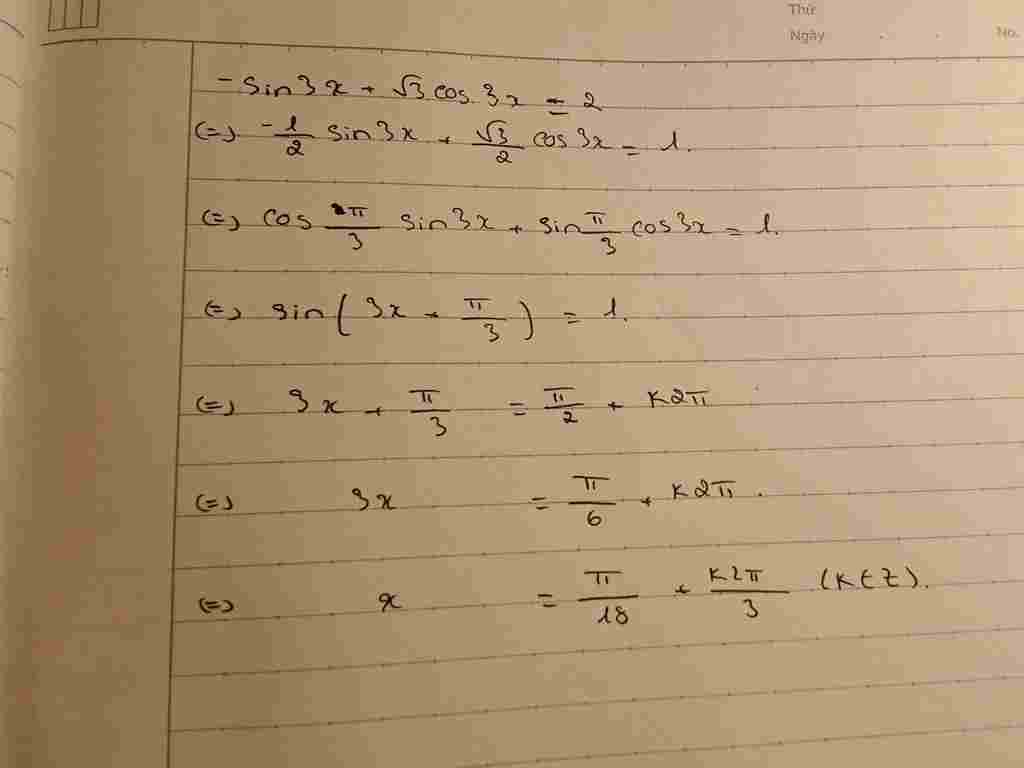 Thứ
Ngày No.
-sin3x + √3cos3x = 2
(=) -1/2 sin3x + √3/2 cos3x = 1.
(=) cos 2π/3 sin3x + sin π/3 cos3x = 1.
(=) sin(3x + π/3) = 1.
(=) 3x + π/3 = π/2 + k2π
(=) 3x = π/6 + k2π.
(=) x = π/18 + k2π/3 (k∈Z).